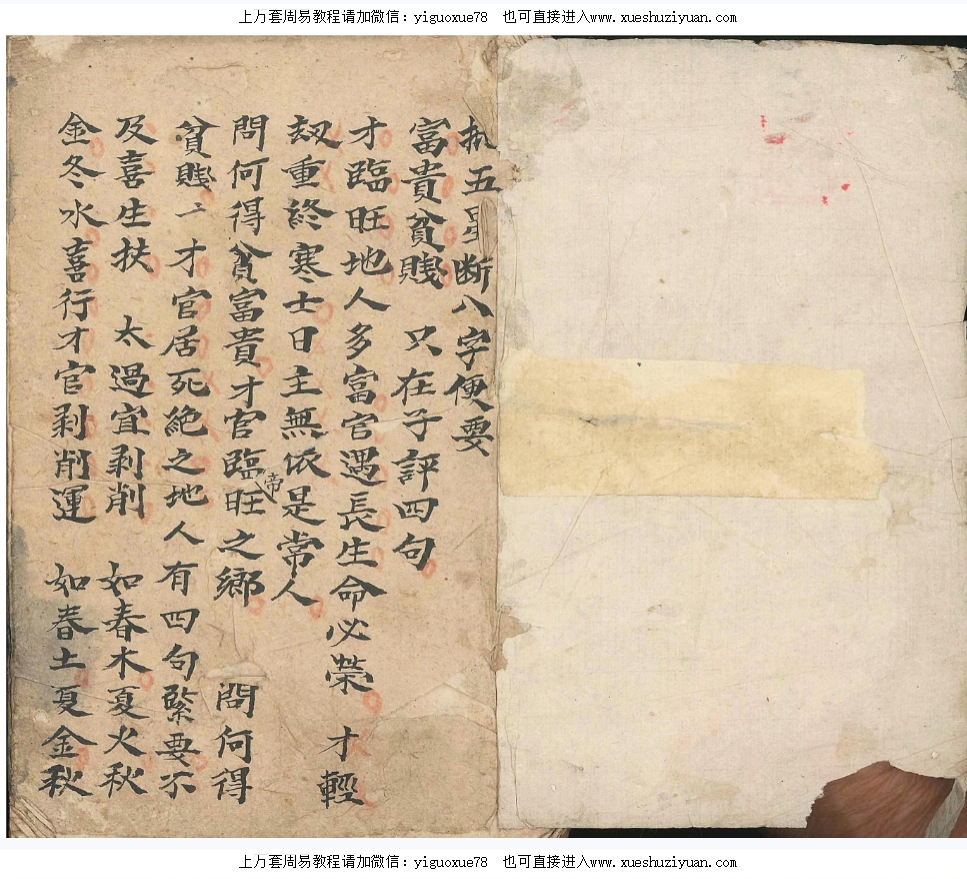 上万套周易教程请加微信：yiguoxue78 也可直接进入www.xueshuziyuan.com
批五星断八字便要
富貴貧賤 只在子評四句
才臨旺地人多富官遇長生命必榮 才輕
刼重終寒士日主無依是常人
問何得貧富貴才官臨帝旺之鄉 問何得
貧賤二才官居死絶之地人有四句緊要不
及喜生扶 太過宜剥削 如春木夏火秋
金冬水喜行才官剥削運 如春土夏金秋
上万套周易教程请加微信：yiguoxue78 也可直接进入www.xueshuziyuan.com